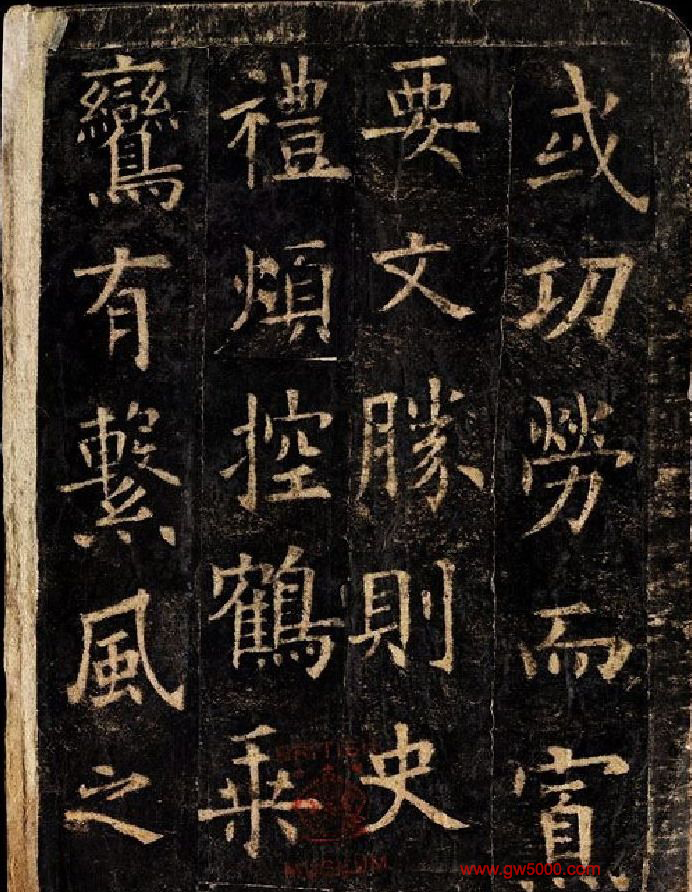 或功勞而寡
要文勝則史
禮煩控鶴乘
鸞有繫風之
BRITISH
MUSEUM
www.gw5000.com